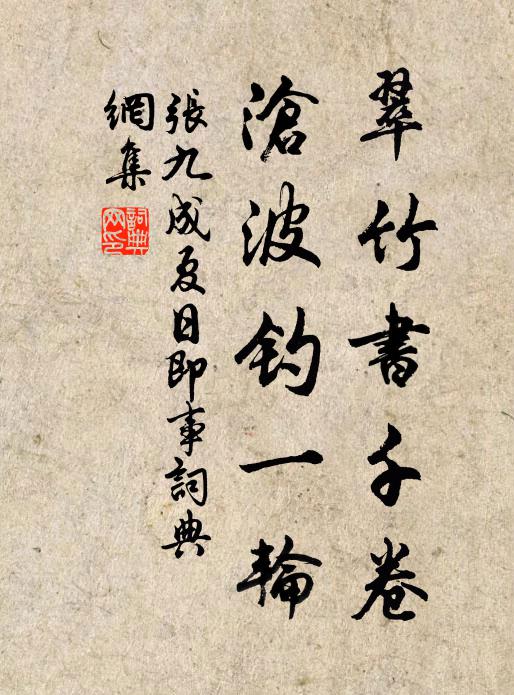 翠竹書千卷
滄波釣一輪
張九成夏日即事詞典
網集
詞典网印